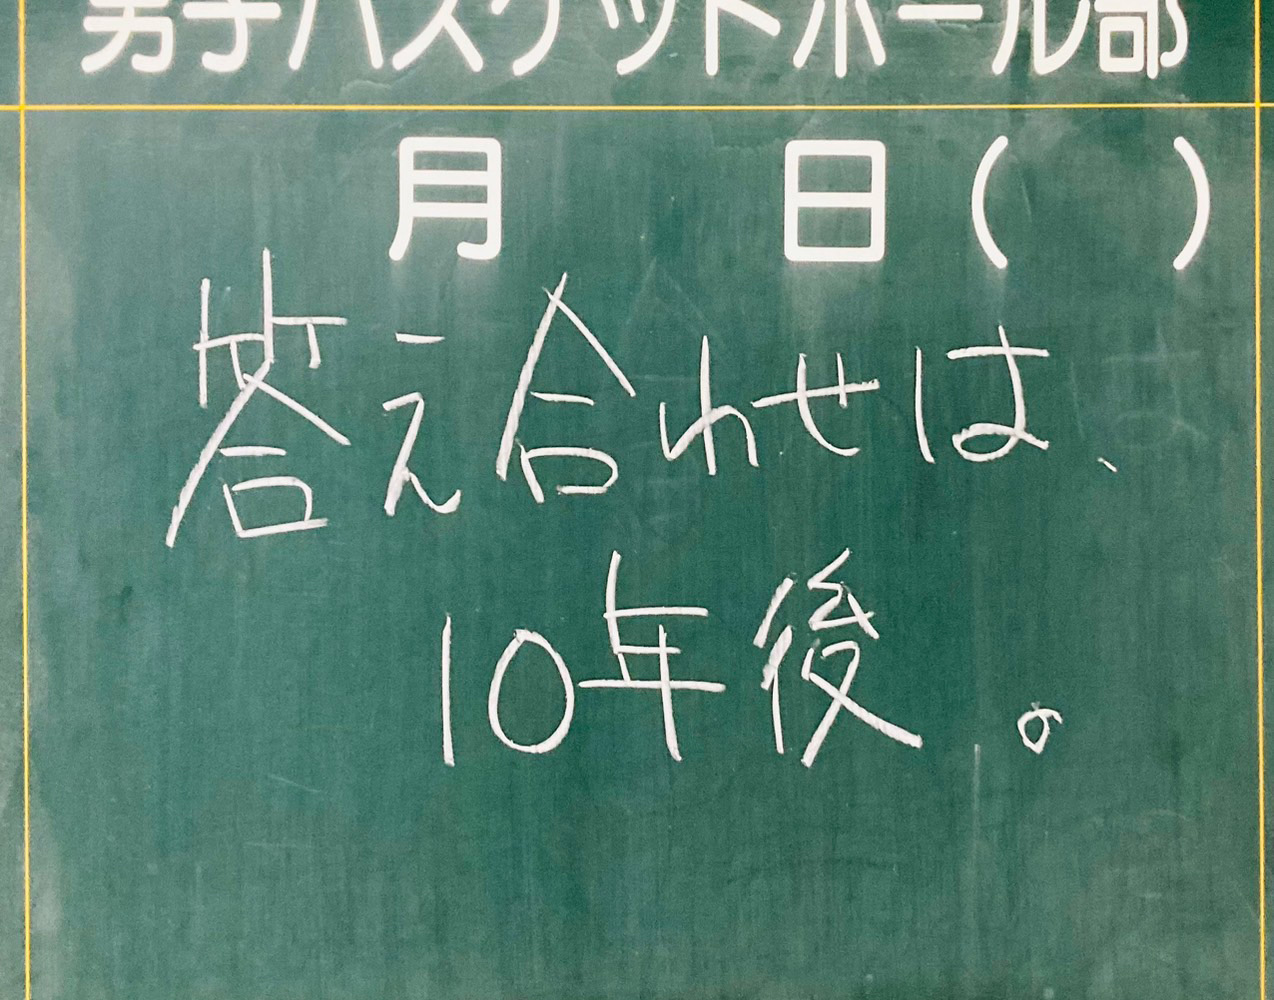 男子バスケットボール部
月 日( )
答え合わせは、
10年後。